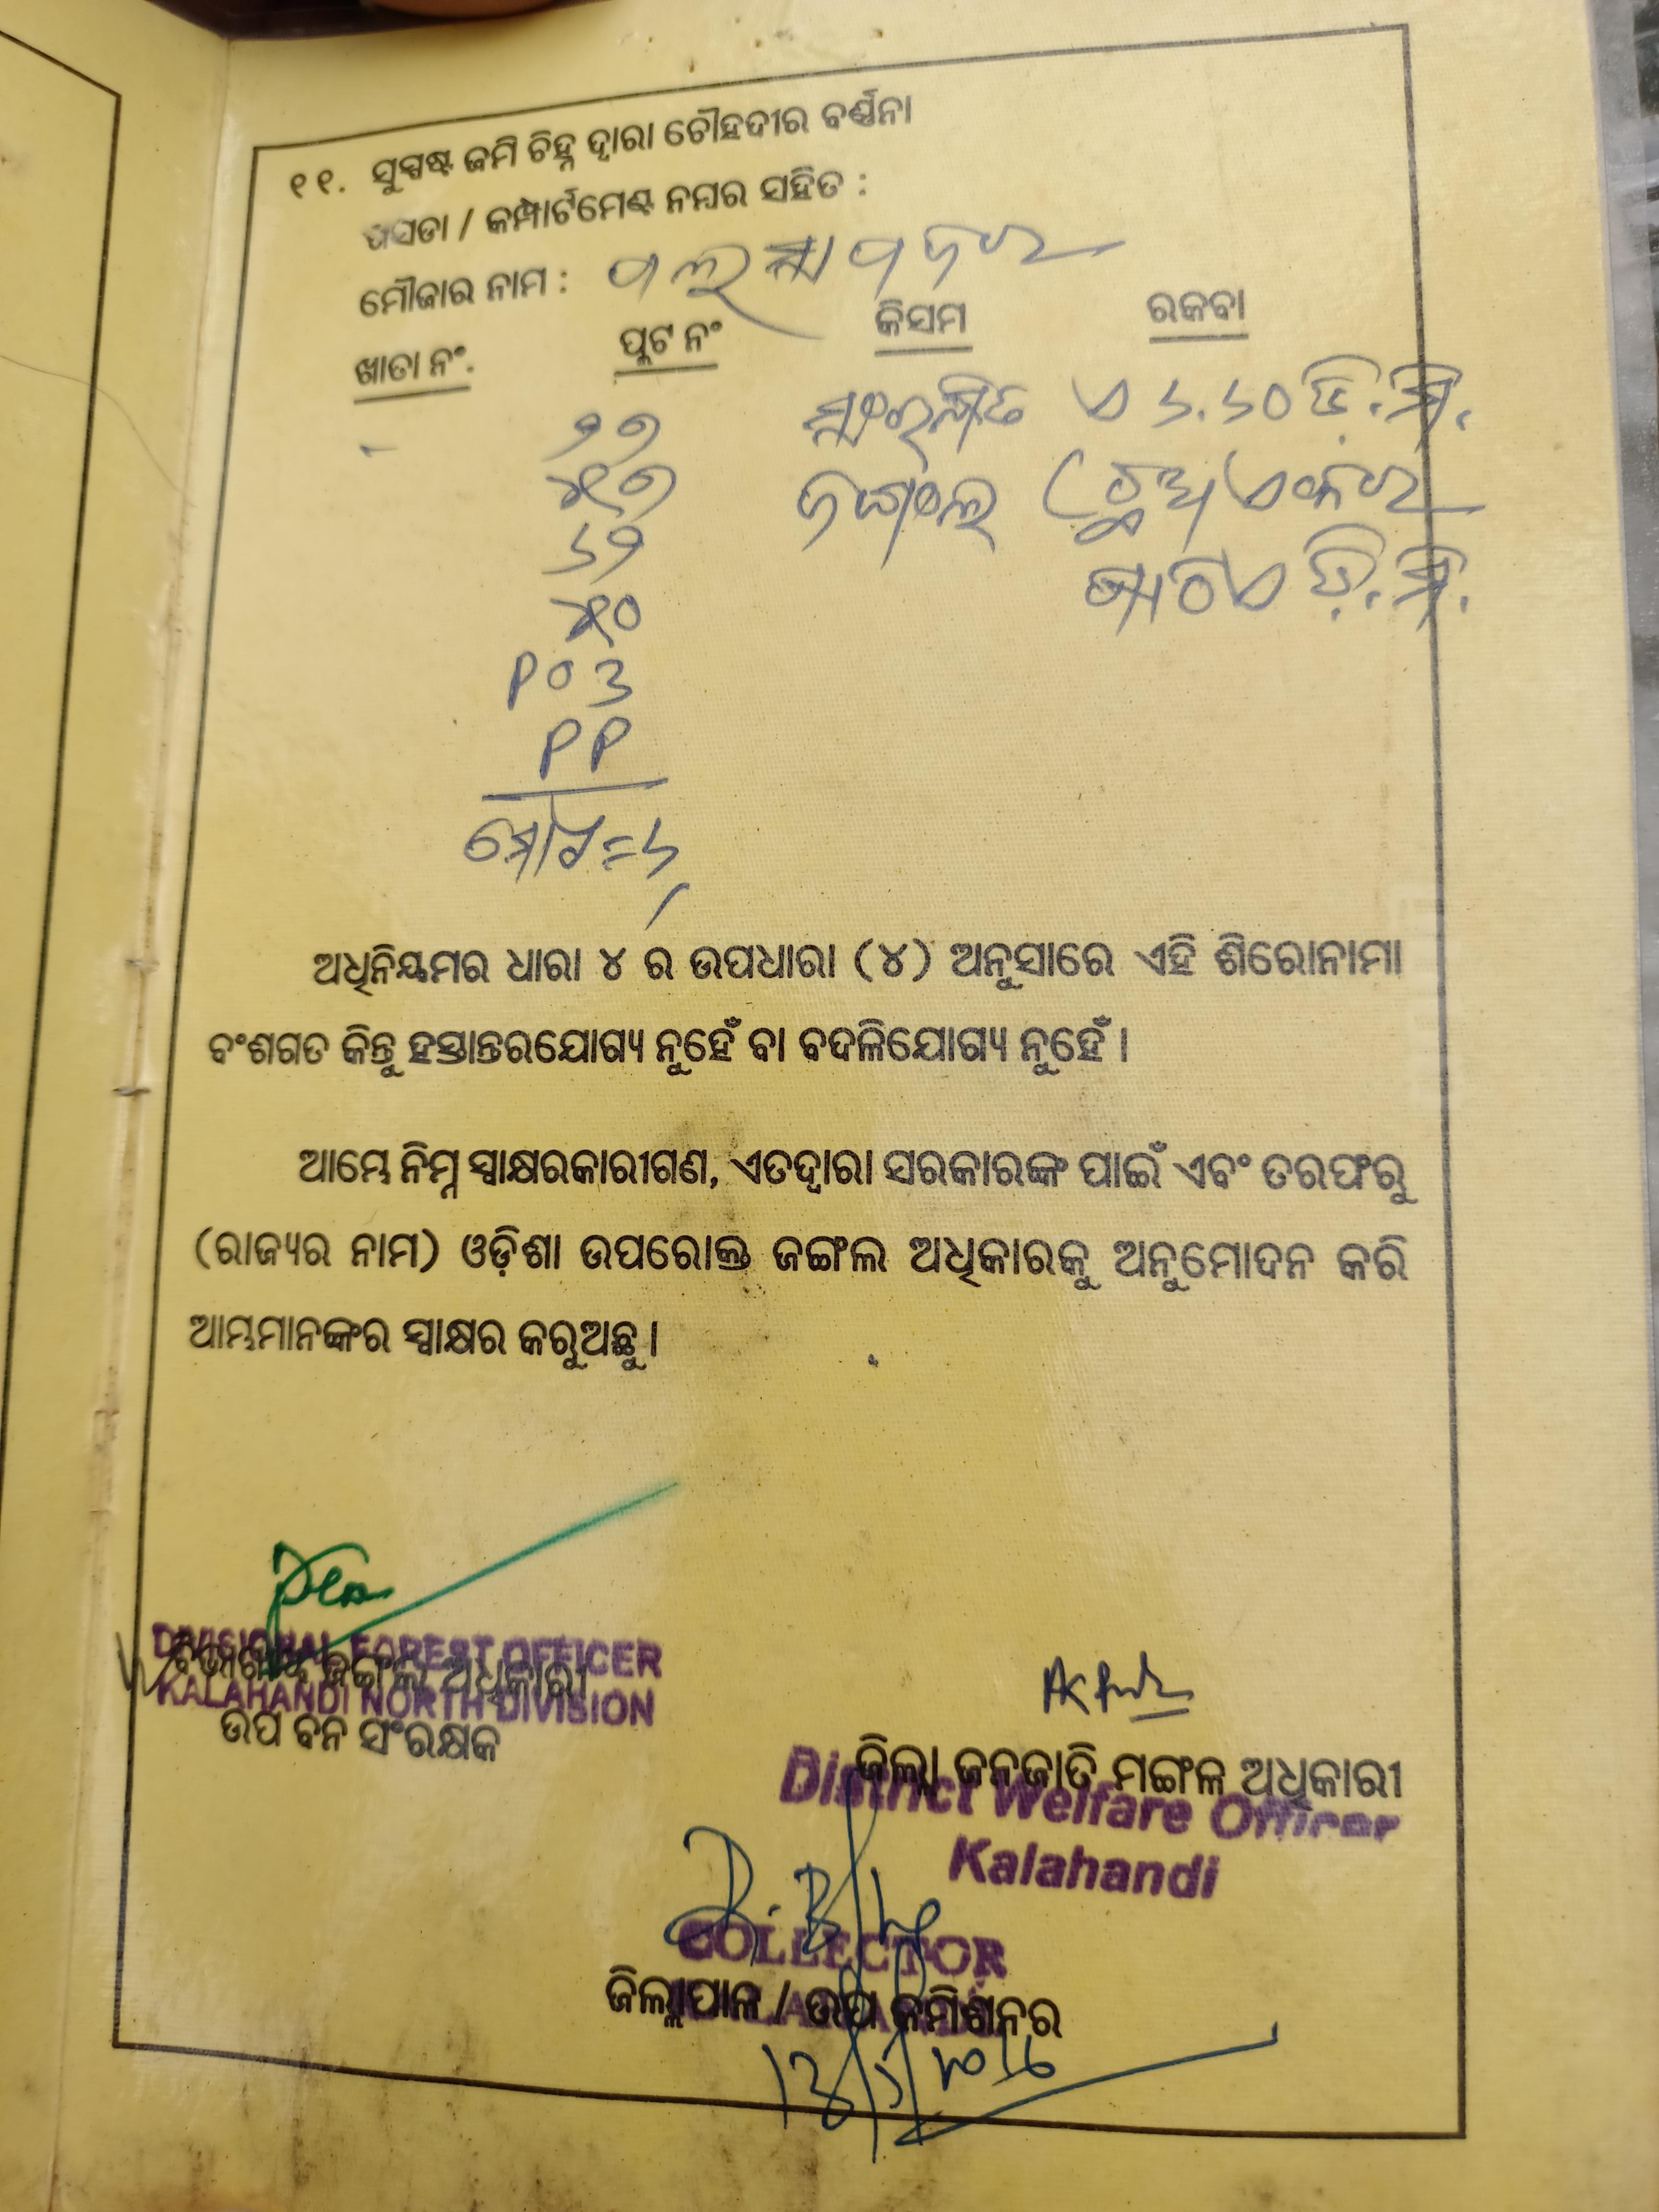 ୧୧. ସୁସ୍ପଷ୍ଟ ଜମି ଚିହ୍ନ ଦ୍ୱାରା ଚୌହଦୀର ବର୍ଣ୍ଣନା
ଖସଡା / କମ୍ପାର୍ଟମେଣ୍ଟ ନମ୍ବର ସହିତ :
ମୌଜାର ନାମ :
ଖାତା ନଂ. ପ୍ଲଟ ନଂ କିସମ ରକବା
- ୨୭ ଏ ୬.୬୦ ଡି.ମି.
୪୭ ଜଙ୍ଗଲ (ଛଅ ଏକର
୬୨ ଷାଠିଏ ଡି.ମି.
୪୦
୮୦୩
୮୮
ମୋଟ=୬
ଅଧିନିୟମର ଧାରା ୪ ର ଉପଧାରା (୪) ଅନୁସାରେ ଏହି ଶିରୋନାମା
ବଂଶଗତ କିନ୍ତୁ ହସ୍ତାନ୍ତରଯୋଗ୍ୟ ନୁହେଁ ବା ବଦଳିଯୋଗ୍ୟ ନୁହେଁ ।
ଆମ୍ଭେ ନିମ୍ନ ସ୍ୱାକ୍ଷରକାରୀଗଣ, ଏତଦ୍ୱାରା ସରକାରଙ୍କ ପାଇଁ ଏବଂ ତରଫରୁ
(ରାଜ୍ୟର ନାମ) ଓଡ଼ିଶା ଉପରୋକ୍ତ ଜଙ୍ଗଲ ଅଧିକାରକୁ ଅନୁମୋଦନ କରି
ଆମ୍ଭମାନଙ୍କର ସ୍ୱାକ୍ଷର କରୁଅଛୁ ।
DIVISIONAL FOREST OFFICER
ବିଭାଗୀୟ ଜଙ୍ଗଲ ଅଧିକାରୀ
KALAHANDI NORTH DIVISION
ଉପ ବନ ସଂରକ୍ଷକ
ଜିଲ୍ଲା ଜନଜାତି ମଙ୍ଗଳ ଅଧିକାରୀ
District Welfare Officer
Kalahandi
COLLECTOR
ଜିଲ୍ଲାପାଳ / ଉପ କମିଶନର